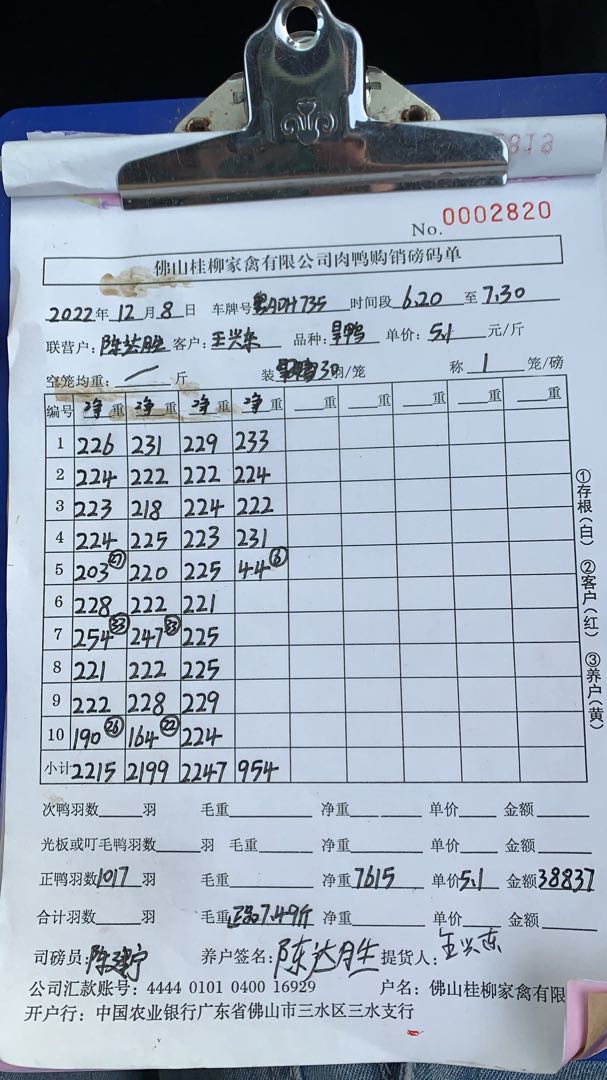 No. 0002820
佛山桂柳家禽有限公司肉鸭购销磅码单
2022年12月8日 车牌号 ADH735 时间段 6.20 至 7.30
联营户: 陈达胜 客户: 王兴东 品种: 旱鸭 单价: 5.1 元/斤
空笼均重: / 斤 装 30羽/笼 称 1 笼/磅
编号 净重 净重 净重 净重 重 重 重 重 重
1 226 231 229 233
2 224 222 222 224
3 223 218 224 222
4 224 225 223 231
5 203 27 220 225 44 6
6 228 222 221
7 254 33 247 33 225
8 221 222 225
9 222 228 229
10 190 26 164 22 224
小计 2215 2199 2247 954
次鸭羽数 羽 毛重 净重 单价 金额
光板或叮毛鸭羽数 羽 毛重 净重 单价 金额
正鸭羽数 1017 羽 毛重 净重 7615 单价 5.1 金额 38837
合计羽数 羽 毛重 正品7.49斤 净重 单价 金额
司磅员: 陈建宁 养户签名: 陈达胜 提货人: 王兴东
公司汇款账号: 4444 0101 0400 16929 户名: 佛山桂柳家禽有限
开户行: 中国农业银行广东省佛山市三水区三水支行
①存根(白) ②客户(红) ③养户(黄)